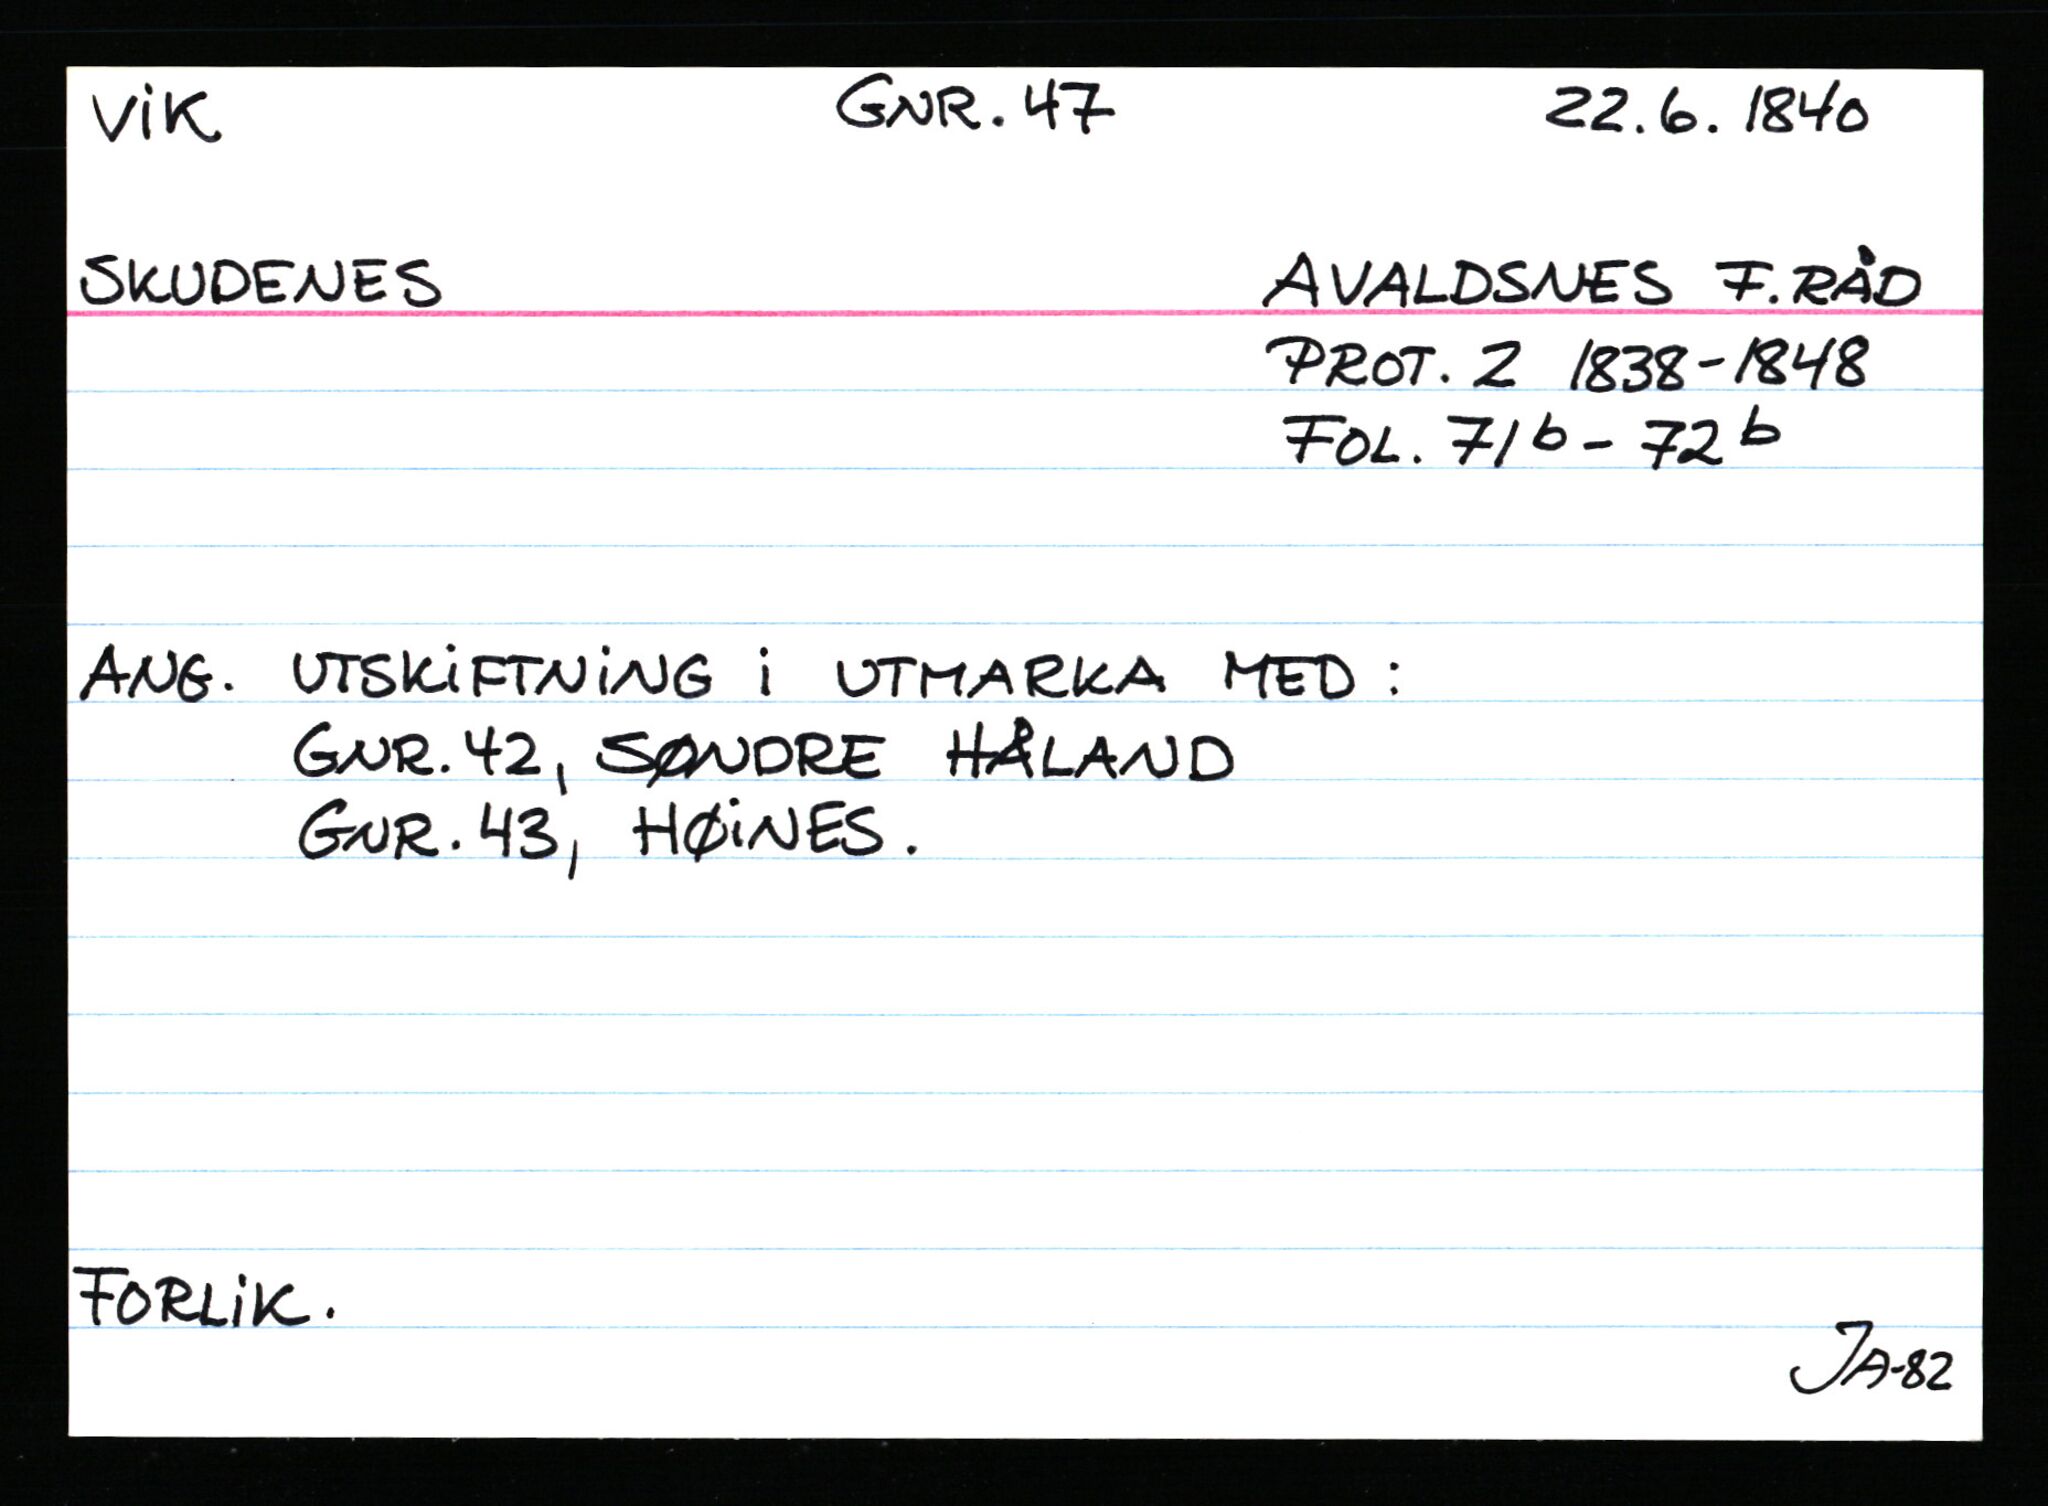 ViK GNR. 47 22.6. 1840
SKUDENES AVALDSNES F.RÅD
PROT. 2 1838-1848
FOL. 71b - 72b
ANG. UTSKiFTNiNG i UTMARKA MED:
GNR. 42, SØNDRE HÅLAND
GNR. 43, HØiNES.
FORLiK.
JA-82